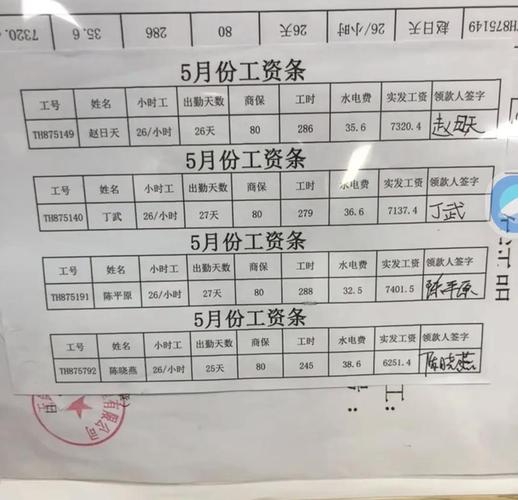 TH875149 赵日天 26/小时 26天 286 80 35.6 7320.
5月份工资条
工号 姓名 小时工 出勤天数 商保 工时 水电费 实发工资 领款人签字
TH875149 赵日天 26/小时 26天 80 286 35.6 7320.4 赵日天
5月份工资条
工号 姓名 小时工 出勤天数 商保 工时 水电费 实发工资 领款人签字
TH875140 丁武 26/小时 27天 80 279 36.6 7137.4 丁武
5月份工资条
工号 姓名 小时工 出勤天数 商保 工时 水电费 实发工资 领款人签字
TH875191 陈平原 26/小时 27天 80 288 32.5 7401.5 陈平原
5月份工资条
工号 姓名 小时工 出勤天数 商保 工时 水电费 实发工资 领款人签字
TH875792 陈晓燕 26/小时 25天 80 245 38.6 6251.4 陈晓燕
有限公司